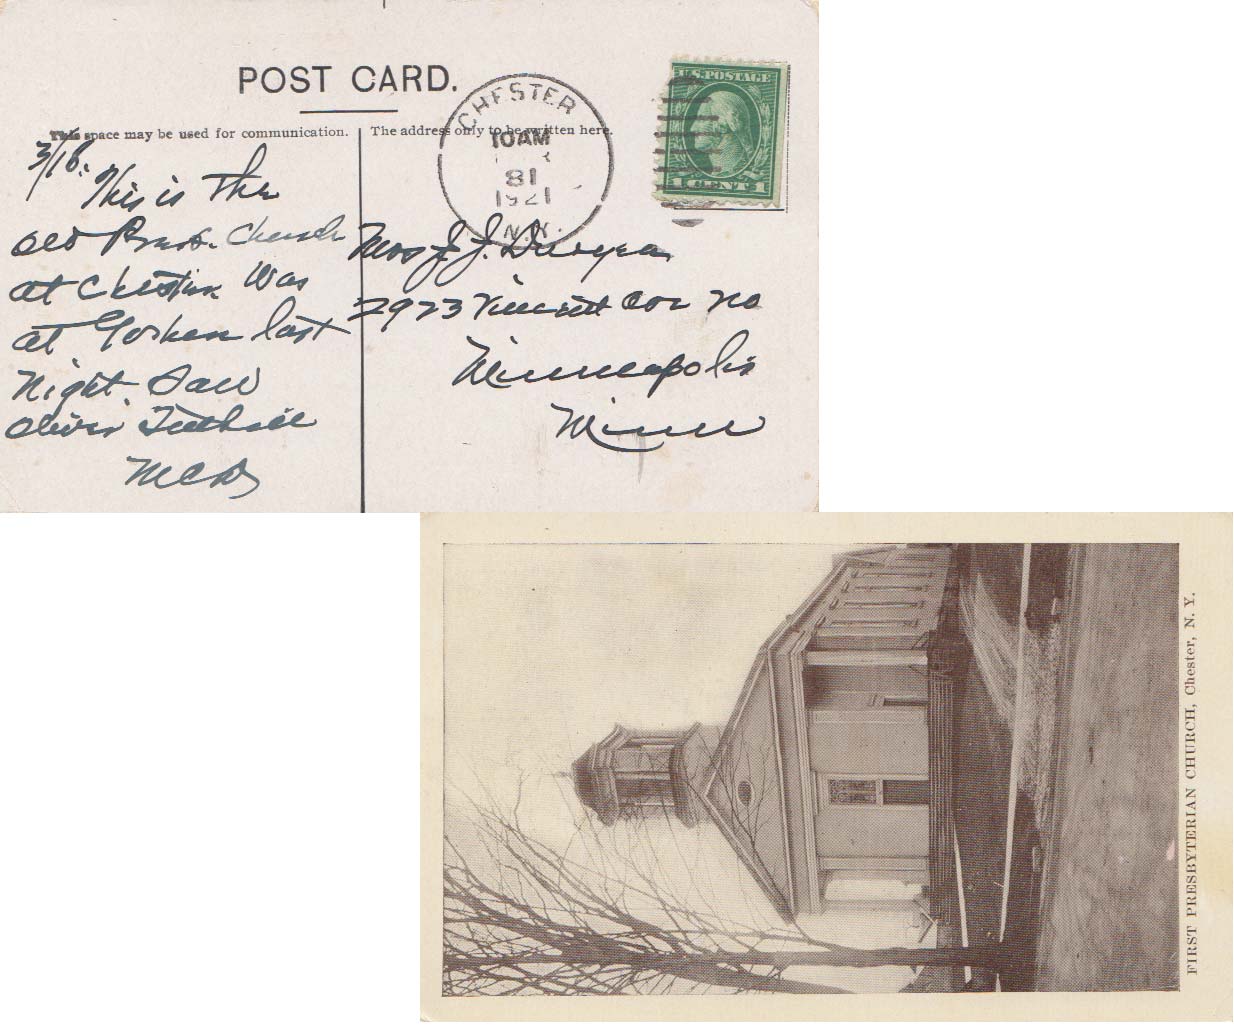 POST CARD.
This space may be used for communication.
The address only to be written here.
CHESTER
10AM
1921
N.Y.
U.S. POSTAGE
1 CENT 1
3/18.
This is the
old Presb. Church
at Chester Was
at Goshen last
Night. Saw
Oliver Tuthill
MCD
Mrs J. J. Dwyer
2923 Vincent Ave No
Minneapolis
Minn
FIRST PRESBYTERIAN CHURCH, Chester, N. Y.